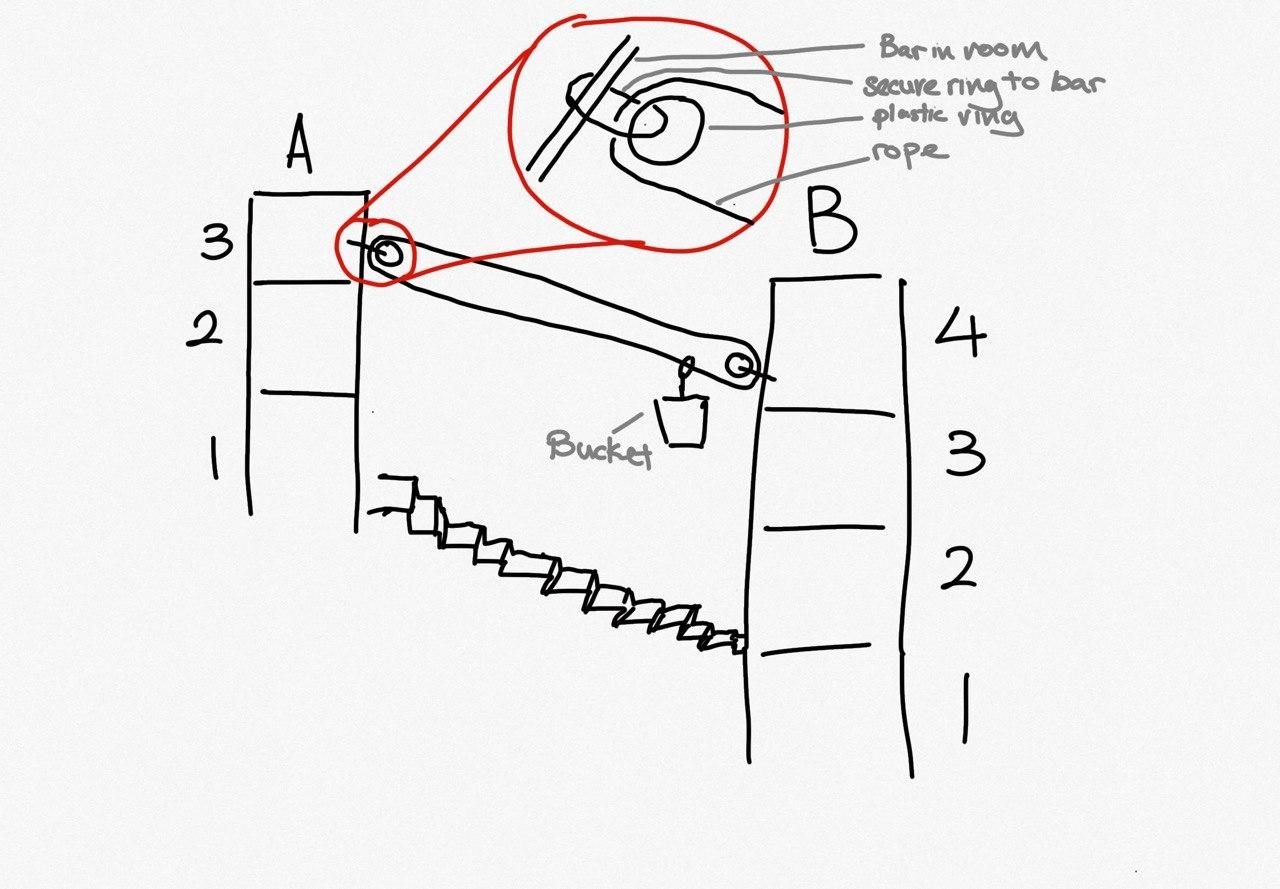 Bar in room
secure ring to bar
plastic ring
rope
A
B
3
2
1
4
3
2
1
Bucket